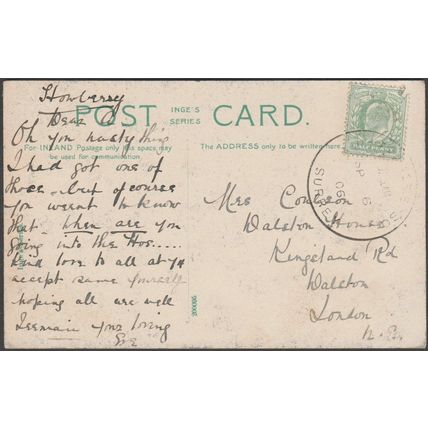 Howberry
POST INGE'S SERIES CARD.
Dear A
Oh you nasty thing
For INLAND Postage only this space may be used for communication.
The ADDRESS only to be written here.
I had got one of
those but of course
you wernt to know
that when are you
going into the Hos.....
Kind love to all at
accept same yourself
hoping all are well
I remain your loving
Mrs Coulson
Dalston House
Kingsland Rd
Dalston
London
N.E.
HALFPENNY
SURREY
SP 6
06
200006